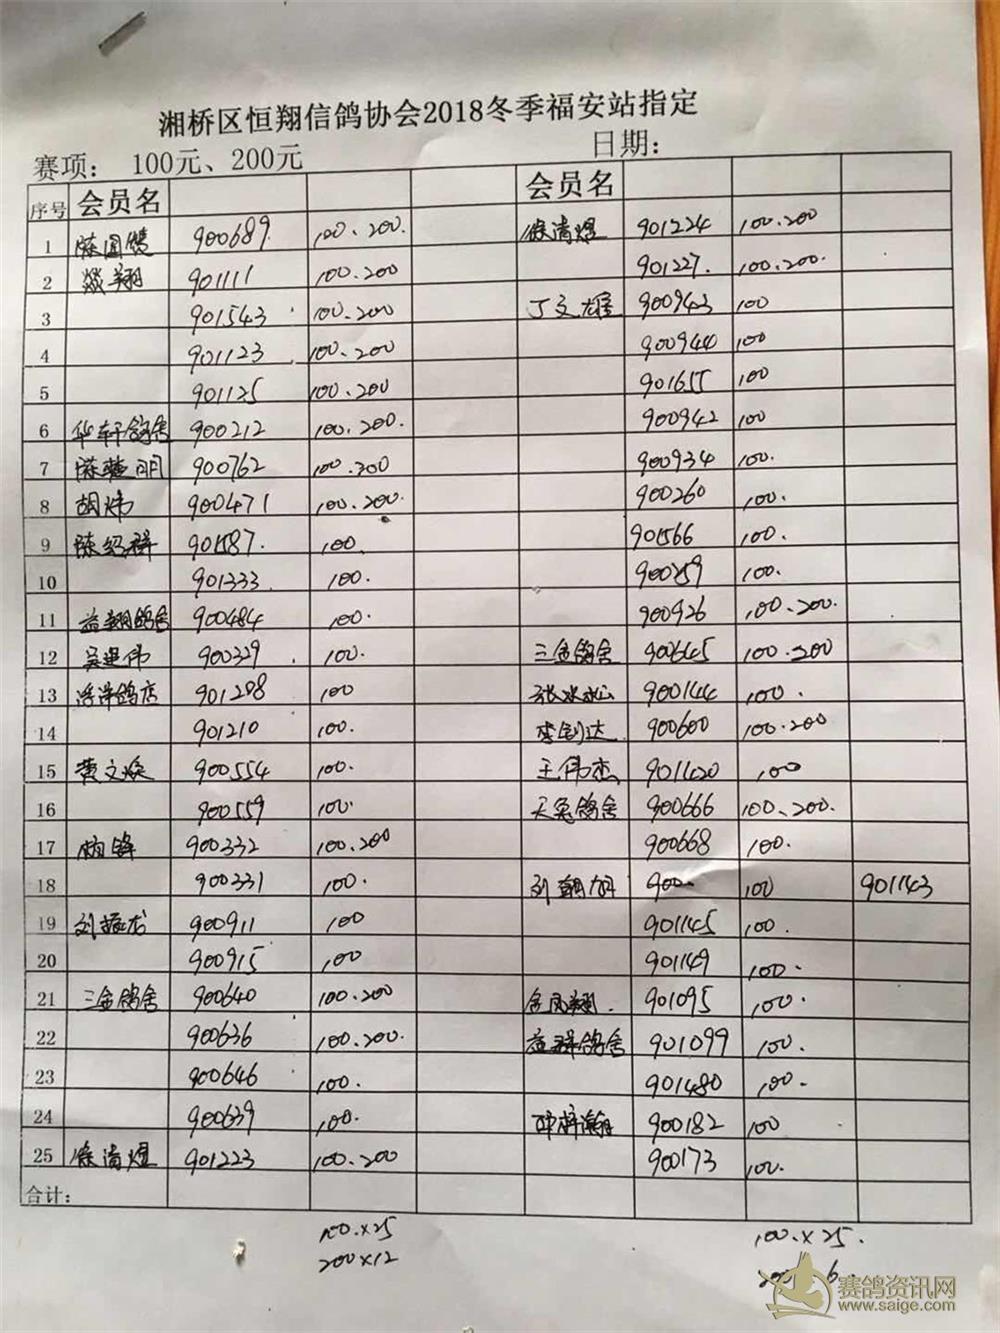 湘桥区恒翔信鸽协会2018冬季福安站指定
赛项： 100元、200元 日期：
序号 会员名 会员名
1 陈圆双 900689. 100.200. 徐清煜 901224 100.200
2 901111 100.200 901227. 100.200.
3 901543 100.200 丁文雄 900943 100
4 901123 100.200 900944 100
5 901125 100.200 901655 100
6 华轩鸽舍 900212 100.200. 900942 100
7 陈楚明 900762 100.300 900934 100.
8 胡炜 900471 100.200. 900260 100.
9 陈绍群 901587. 100. 901566 100.
10 901333. 100. 900259 100.
11 益翔鸽舍 900484 100. 900926 100.200.
12 吴进伟 900329 100. 三金鸽舍 900645 100.200
13 鸽店 901208 100 900144 100.
14 901210 100. 李剑达 900600 100.200
15 黄文焕 900554 100. 王伟杰 901420 100
16 900559 100. 天兔鸽舍 900666 100.200.
17 900332 100.200 900668 100.
18 900331 100. 刘 900 100 901143
19 刘振龙 900911 100 901145 100.
20 900915 100 901149 100.
21 三金鸽舍 900640 100.200 901095 100.
22 900636 100.200. 益群鸽舍 901099 100.
23 900646 100. 901480 100.
24 900639 100. 900182 100
25 徐清煜 901223 100.200 900173 100.
合计：
100.×25 100.×25.
200×12 6.
赛鸽资讯网
www.saige.com